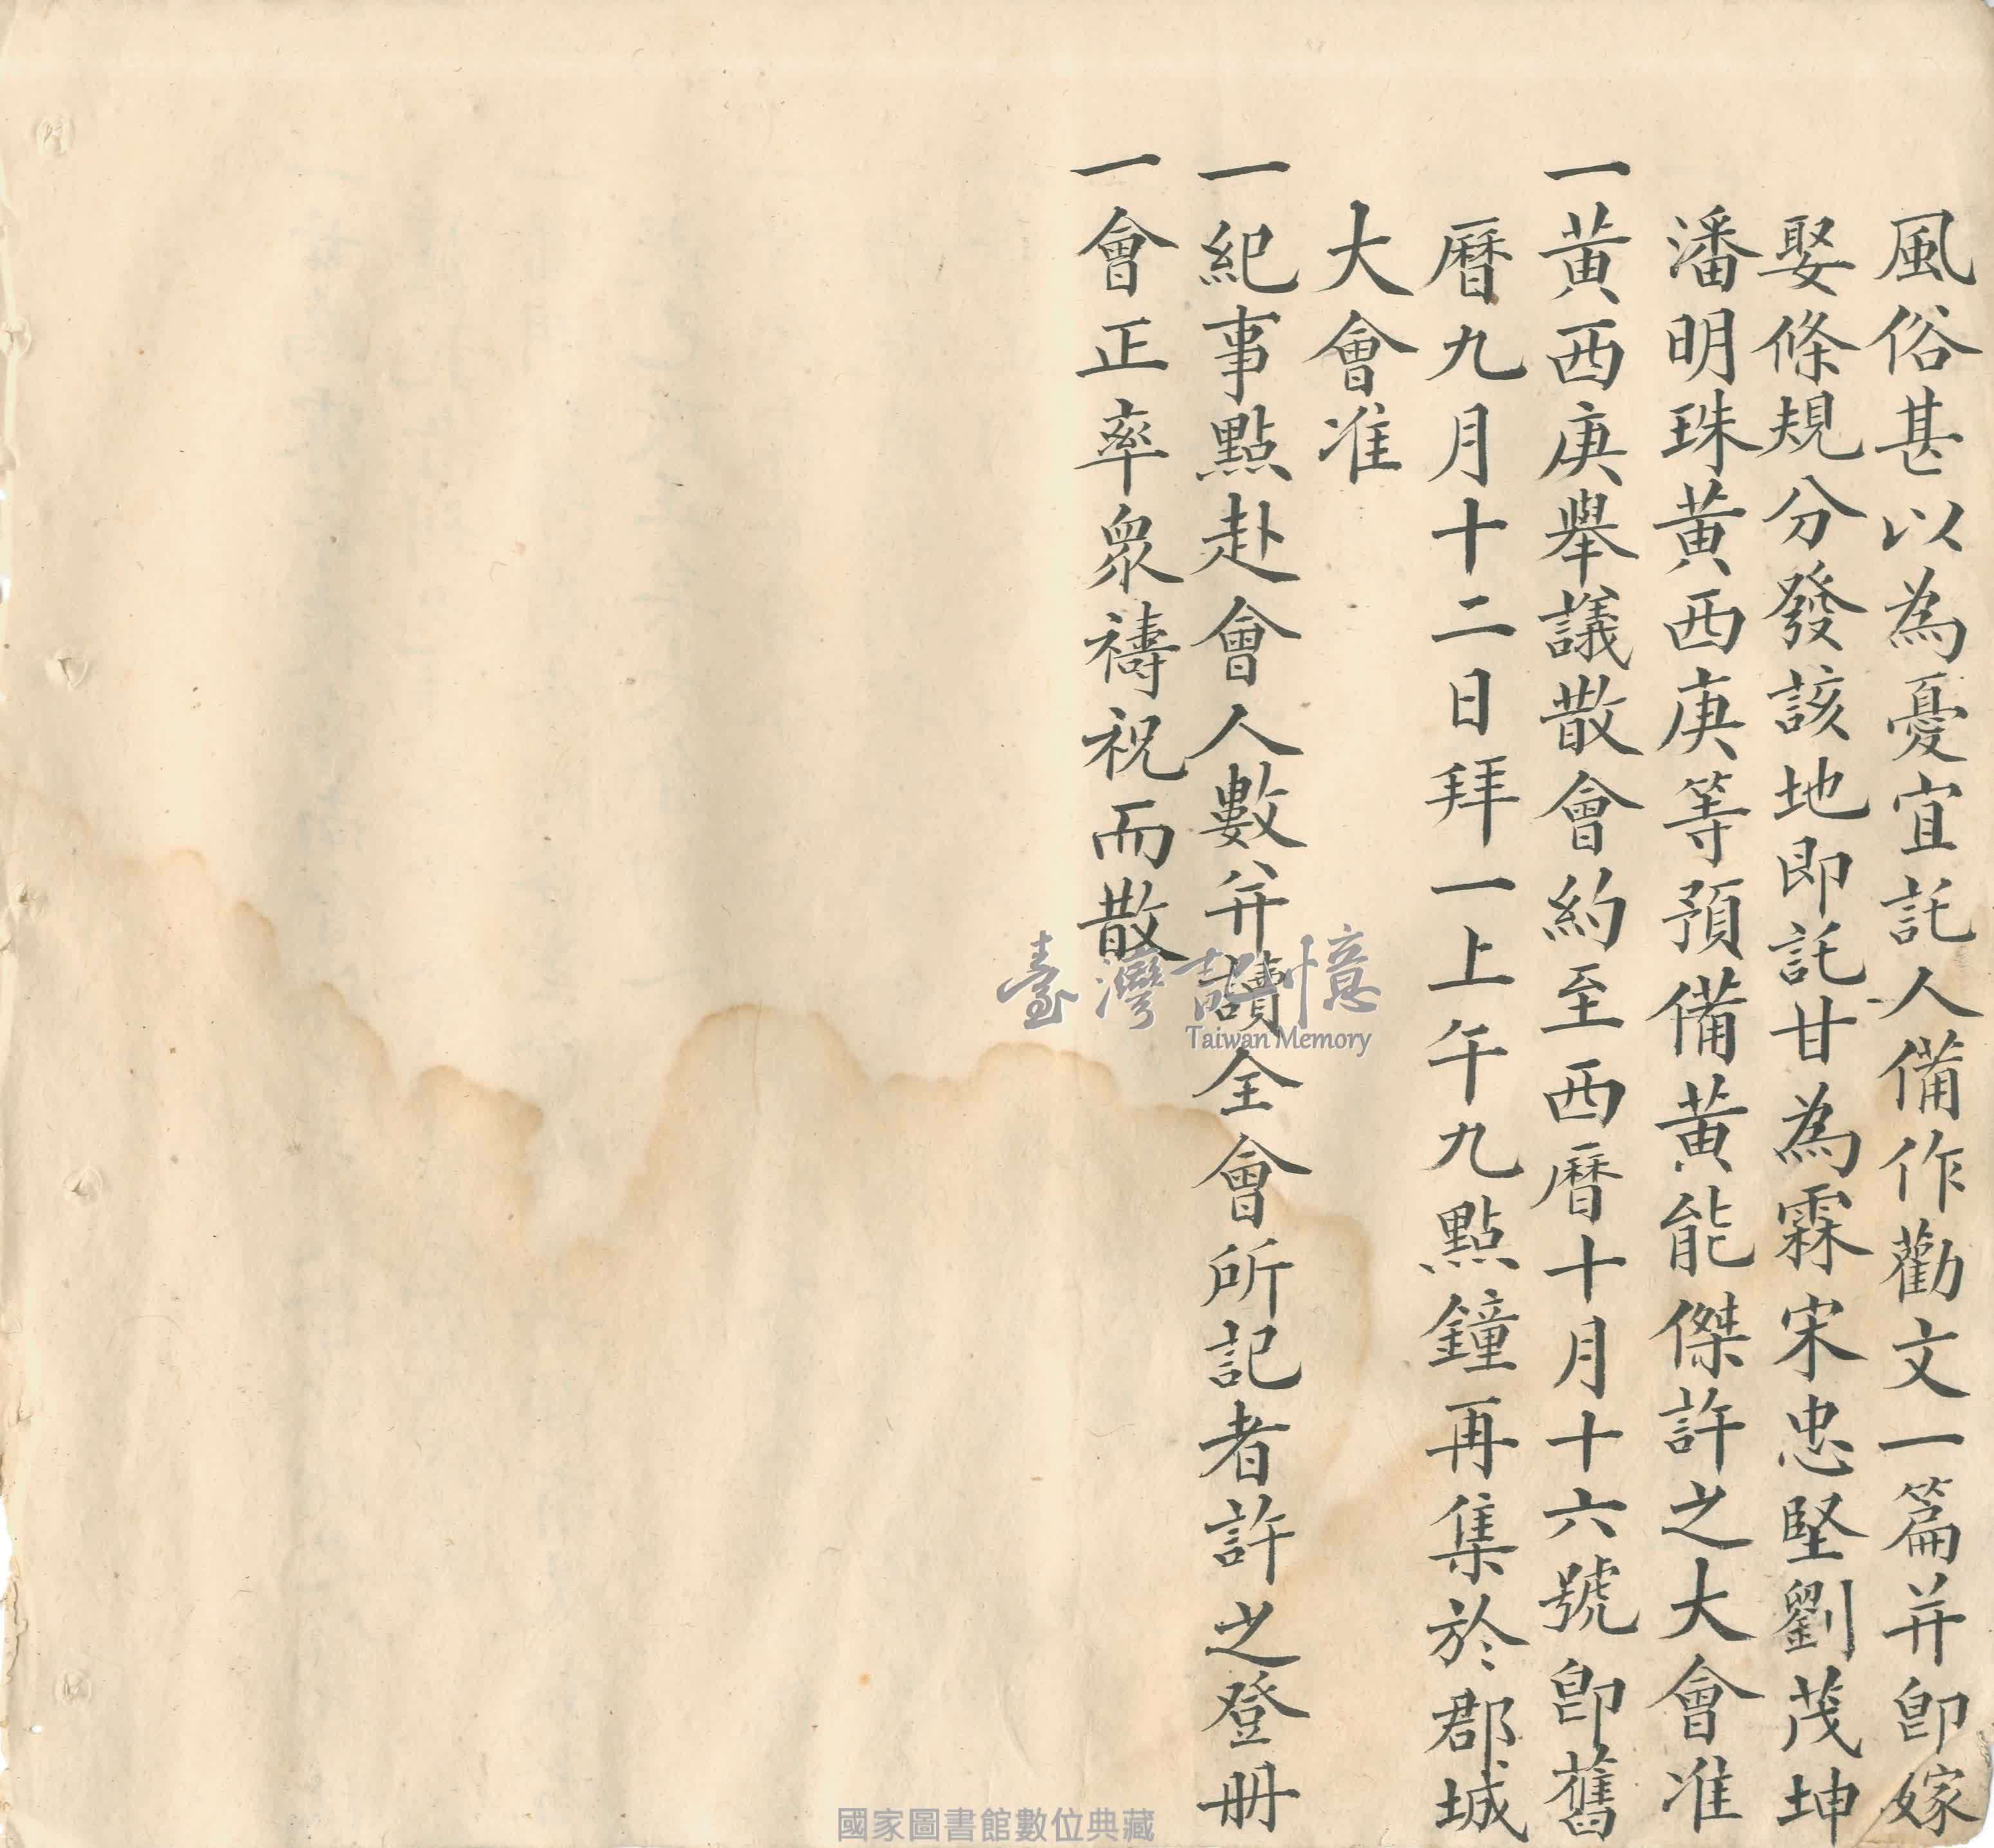 風俗甚以為憂宜託人備作勸文一篇并卽嫁
娶條規分發該地即託甘為霖宋忠堅劉茂坤
潘明珠黃西庚等預備黃能傑許之大會准
一黃西庚舉議散會約至西曆十月十六號卽舊
曆九月十二日拜一上午九點鐘再集於郡城
大會准
一紀事點赴會人數并讀全會所記者許之登冊
一會正率眾禱祝而散
臺灣記憶
Taiwan Memory
國家圖書館數位典藏